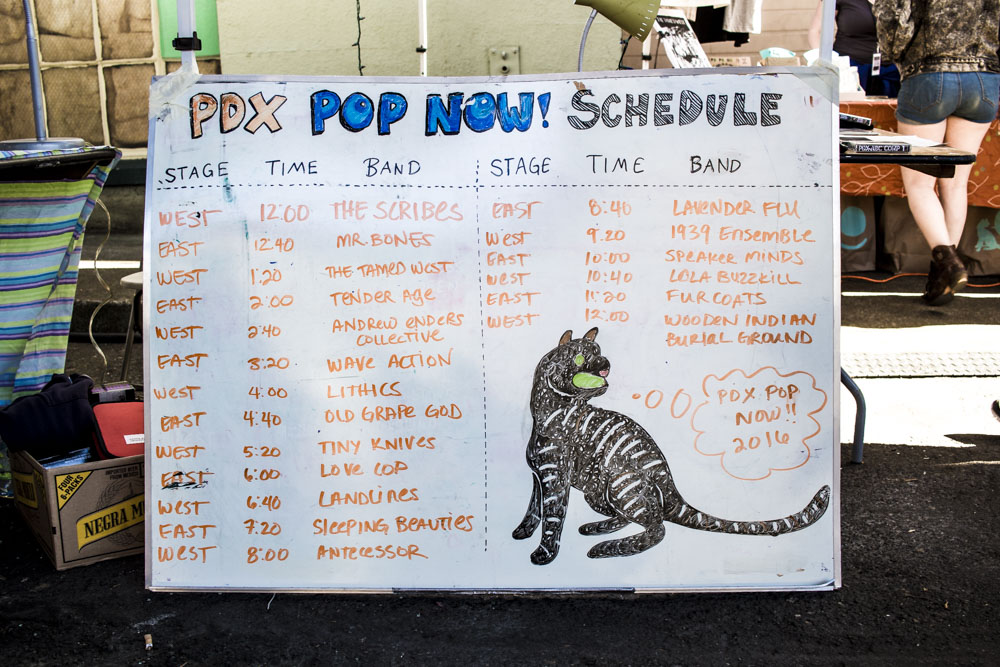 PDX POP NOW! SCHEDULE
STAGE TIME BAND
WEST 12:00 THE SCRIBES
EAST 12:40 MR. BONES
WEST 1:20 THE TAMED WEST
EAST 2:00 TENDER AGE
WEST 2:40 ANDREW ENDERS
COLLECTIVE
EAST 3:20 WAVE ACTION
WEST 4:00 LITHICS
EAST 4:40 OLD GRAPE GOD
WEST 5:20 TINY KNIVES
EAST 6:00 LOVE COP
WEST 6:40 LANDLINES
EAST 7:20 SLEEPING BEAUTIES
WEST 8:00 ANTECESSOR
STAGE TIME BAND
EAST 8:40 LAVENDER FLU
WEST 9:20 1939 ENSEMBLE
EAST 10:00 SPEAKER MINDS
WEST 10:40 LOLA BUZZKILL
EAST 11:20 FUR COATS
WEST 12:00 WOODEN INDIAN
BURIAL GROUND
PDX POP
NOW!!
2016
FOUR
6-PACKS
NEGRA M